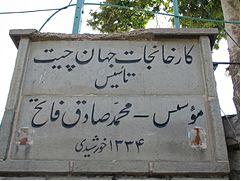 کارخانجات جهان چیت
تاسیس
مؤسس - محمد صادق فاتح
۱۳۳۴ خورشیدی